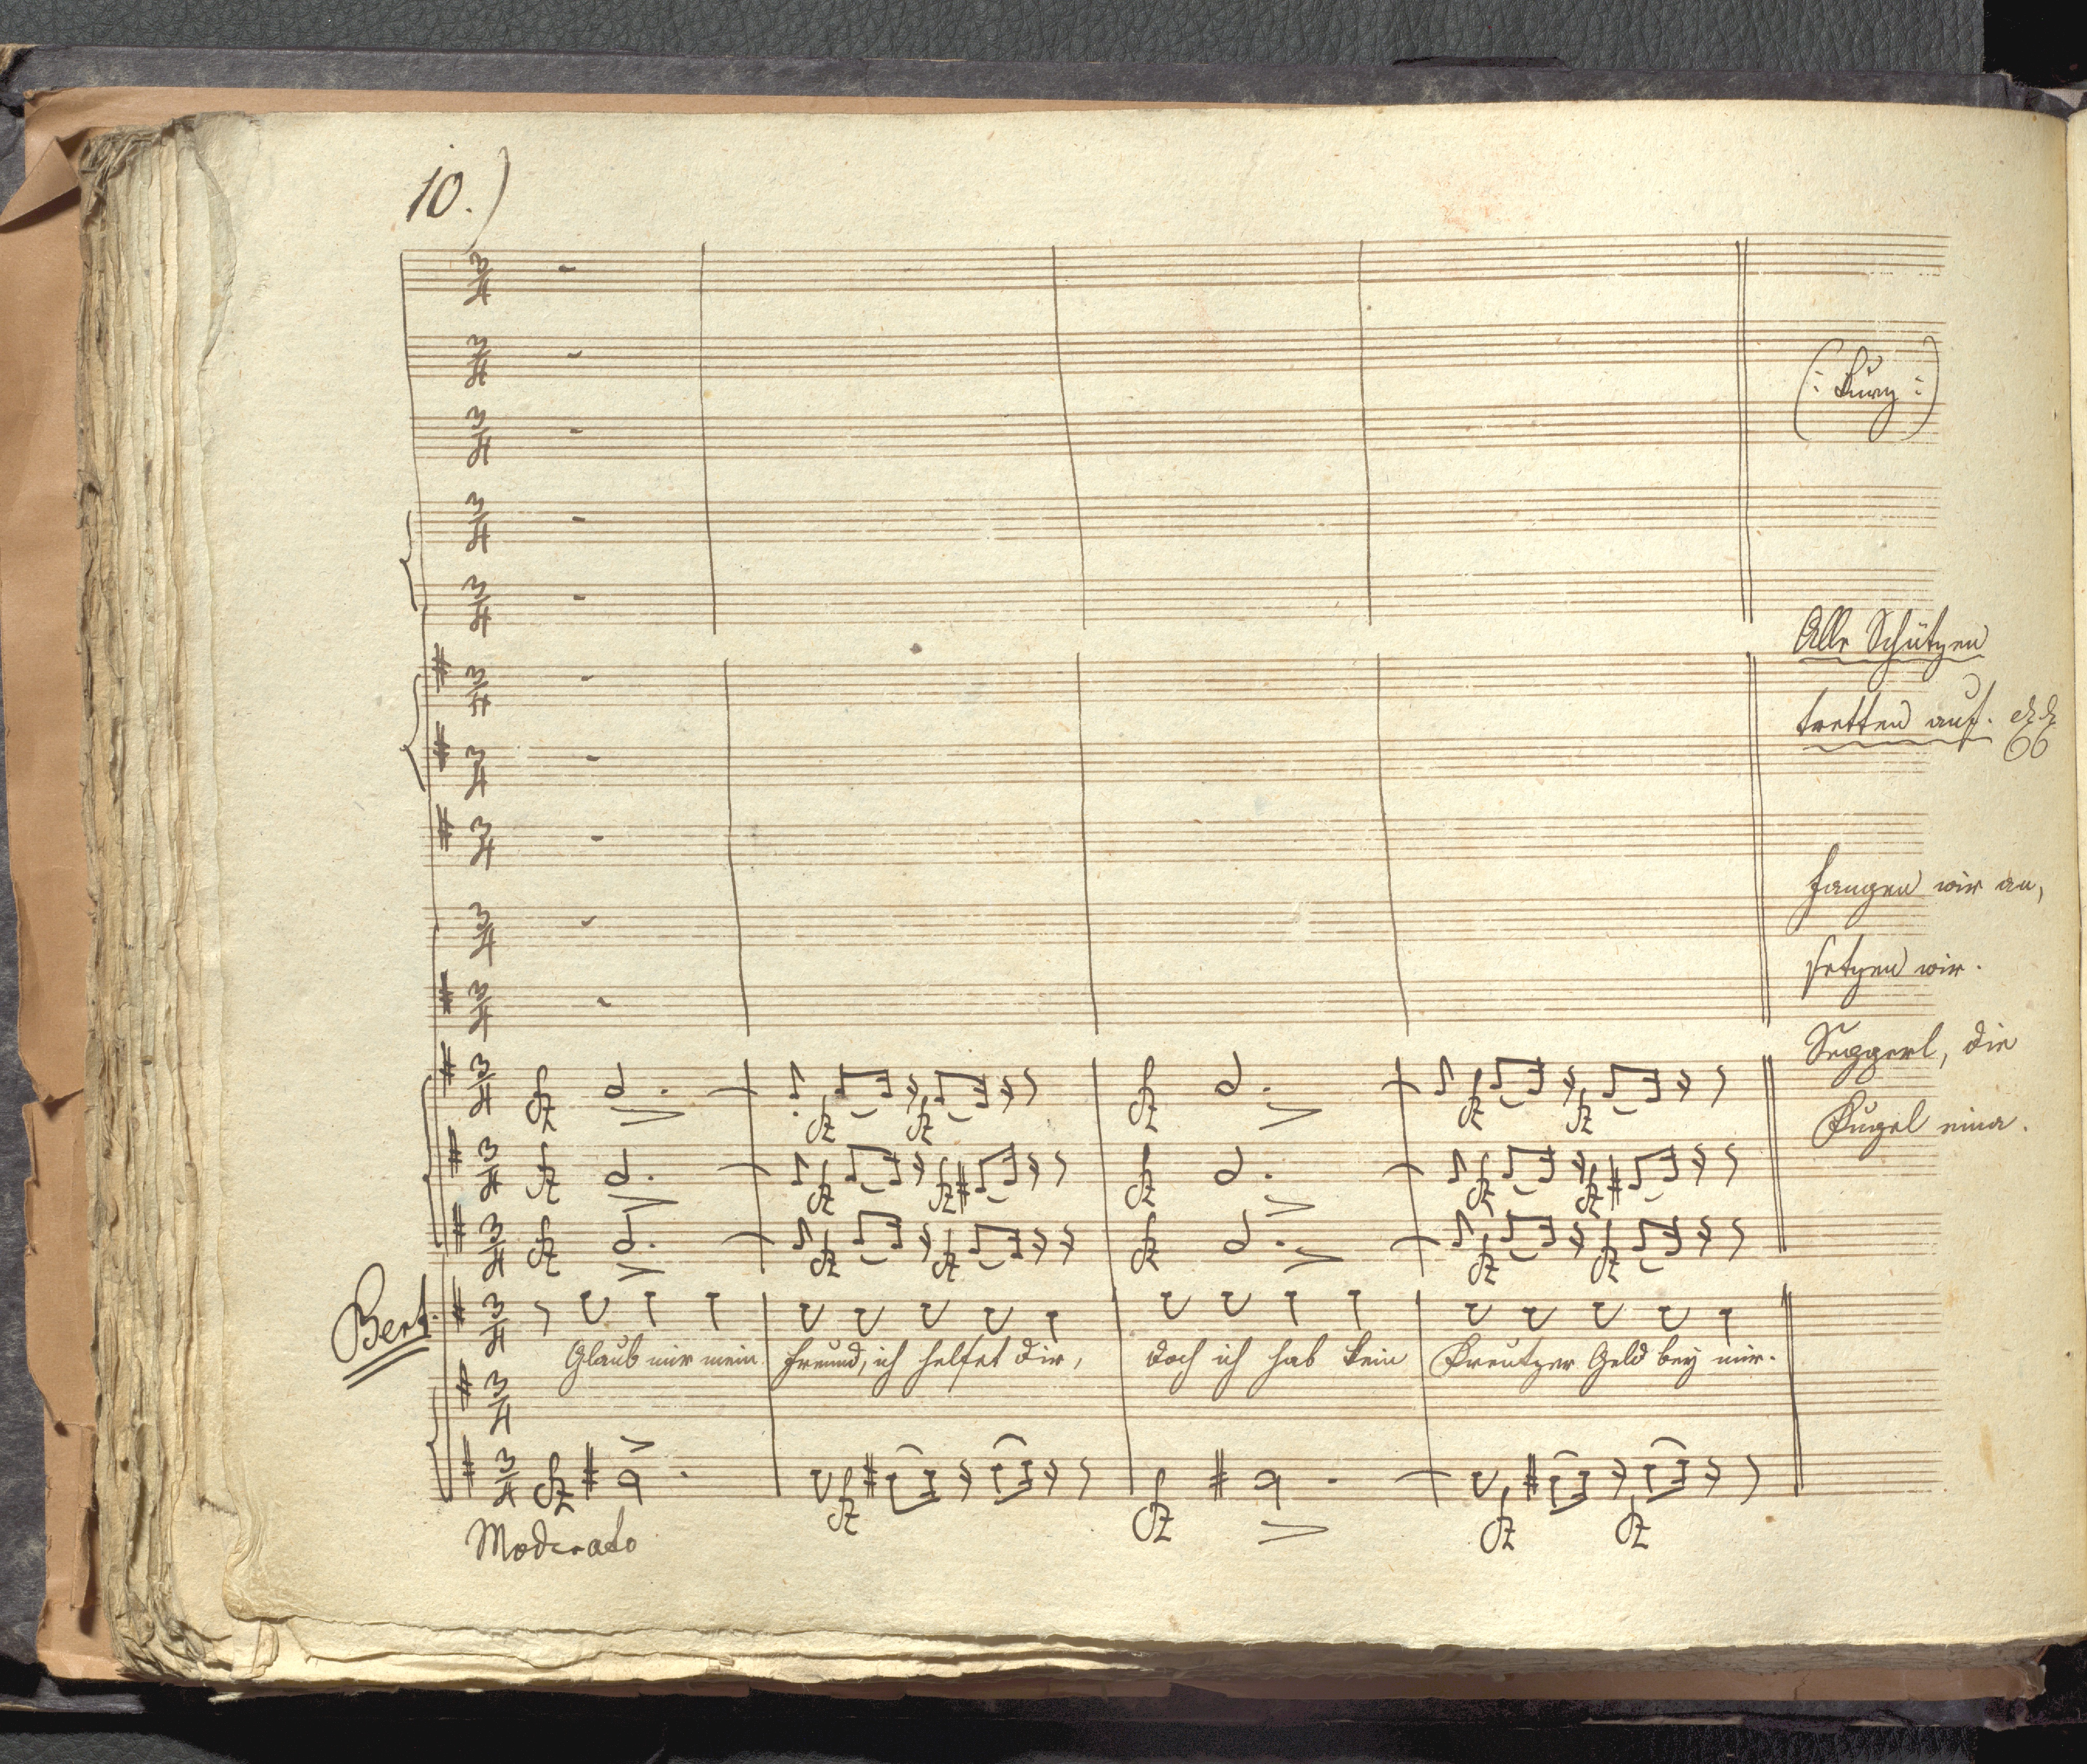 10.)
(: Kurz :)
Alle Schützen
tretten auf.
fangen wir an,
setzen wir.
Seggerl, die
Kugel eina.
Bert.
Glaub mir mein Freund, ich helfet dir, doch ich hab kein Kreutzer Geld bey mir.
Moderato